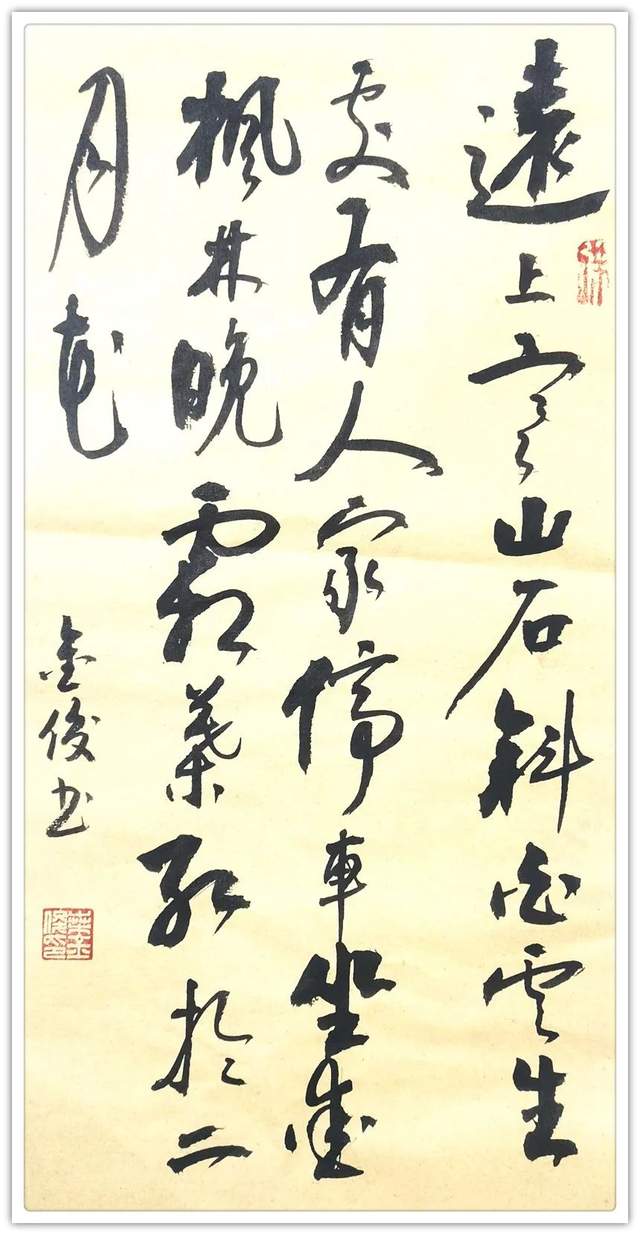 遠上寒山石斜白雲生
處有人家停車坐愛
楓林晚霜葉紅於二
月花
金俊书